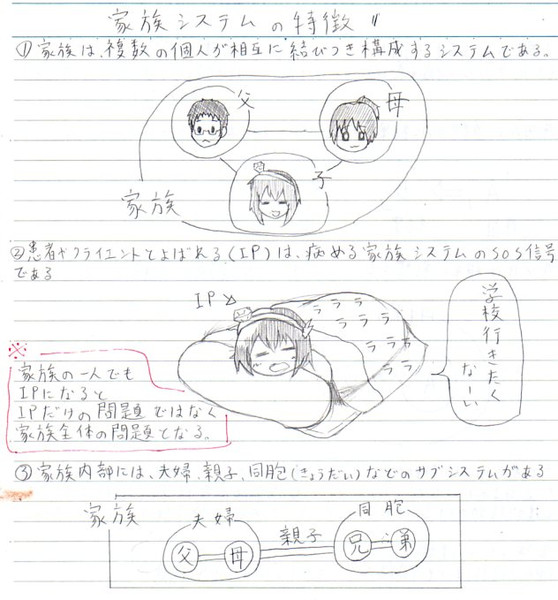 家族システムの特徴
①家族は、複数の個人が相互に結びつき構成するシステムである。
父
母
子
家族
②患者やクライエントとよばれる(IP)は、病める家族システムのSOS信号
である
IP
ラララ
ラララ
ラララ
ラララ
学校行きたく
なーい
※
家族の一人でも
IPになると
IPだけの問題ではなく
家族全体の問題となる。
③家族内部には、夫婦、親子、同胞(きょうだい)などのサブシステムがある
家族
夫婦
親子
同胞
父
母
兄
弟